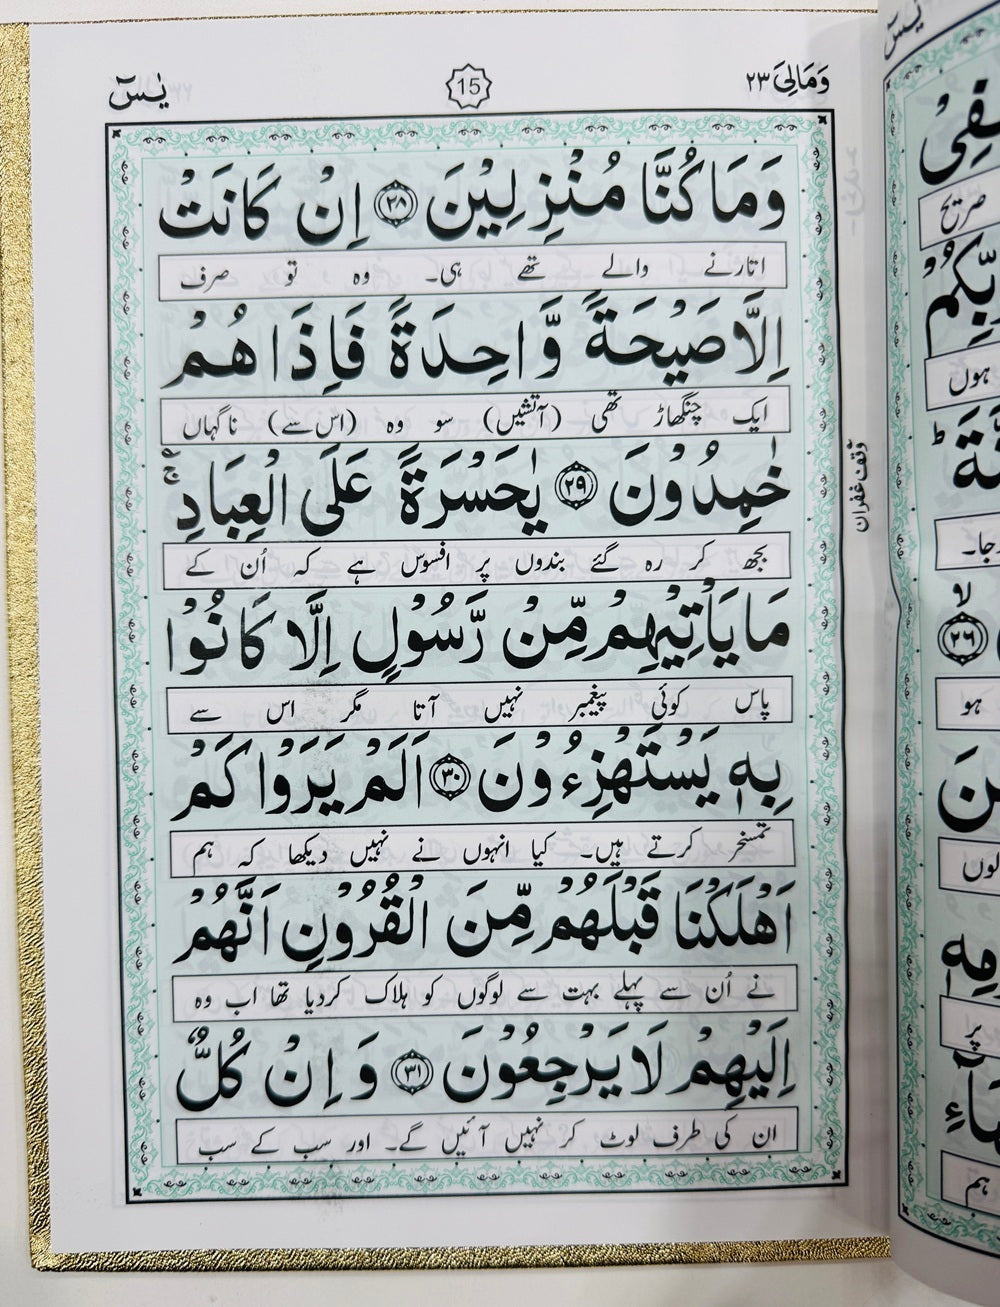 وَمَالِیَ ٢٣
15
يٰسٓ
وَمَا كُنَّا مُنْزِلِيْنَ ﴿٢٨﴾ اِنْ كَانَتْ
اتارنے والے تھے ہی۔ وہ تو صرف
اِلَّا صَيْحَةً وَّاحِدَةً فَاِذَا هُمْ
ایک چنگھاڑ تھی (آتشیں) سو وہ (اس سے) ناگہاں
خٰمِدُوْنَ ﴿٢٩﴾ يٰحَسْرَةً عَلَى الْعِبَادِ ۚ
بجھ کر رہ گئے بندوں پر افسوس ہے کہ اُن کے
مَا يَاْتِيْهِمْ مِّنْ رَّسُوْلٍ اِلَّا كَانُوْا
پاس کوئی پیغمبر نہیں آتا مگر اس سے
بِهٖ يَسْتَهْزِءُوْنَ ﴿٣٠﴾ اَلَمْ يَرَوْا كَمْ
تمسخر کرتے ہیں۔ کیا انہوں نے نہیں دیکھا کہ ہم
اَهْلَكْنَا قَبْلَهُمْ مِّنَ الْقُرُوْنِ اَنَّهُمْ
نے اُن سے پہلے بہت سے لوگوں کو ہلاک کردیا تھا اب وہ
اِلَيْهِمْ لَا يَرْجِعُوْنَ ﴿٣١﴾ وَاِنْ كُلٌّ
ان کی طرف لوٹ کر نہیں آئیں گے۔ اور سب کے سب
وقف غفران
يٰسٓ
صریح
ہوں
﴿٢٦﴾ ۙ
ہو
پر
ہم